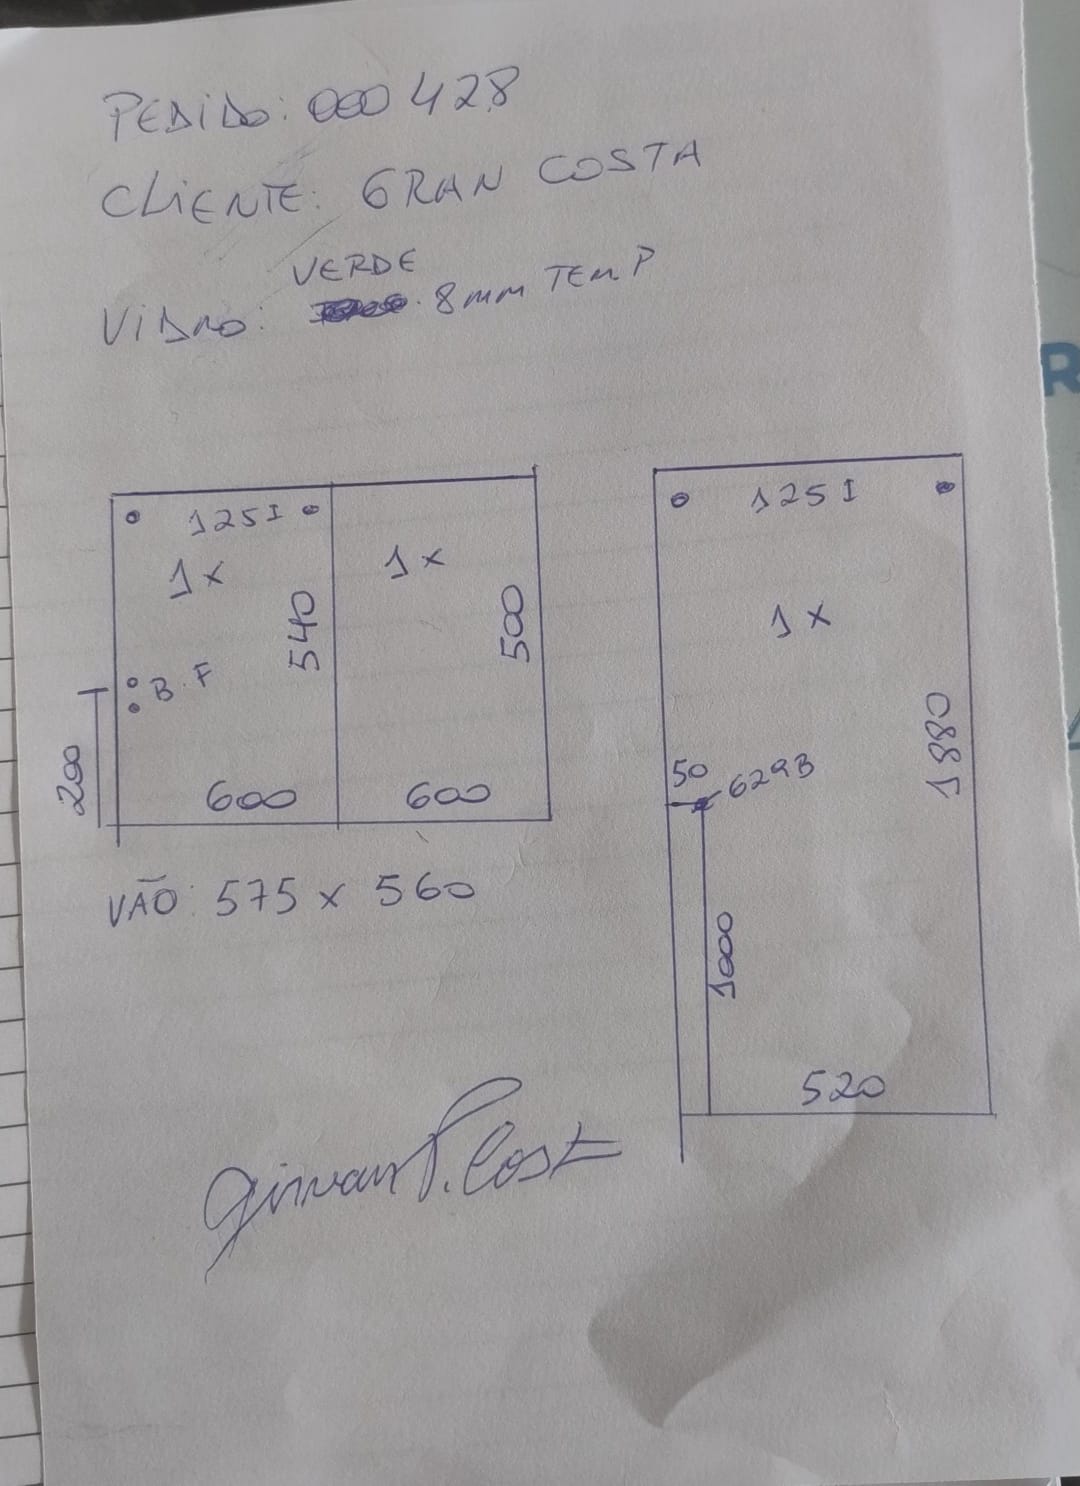 PEDIDO: 000428
CLIENTE: GRAN COSTA
VERDE
VIDRO: 8mm TEMP
125I
1x
1x
540
500
B.F
200
600
600
VÃO: 575 x 560
125I
1x
1880
50
629B
1000
520
R